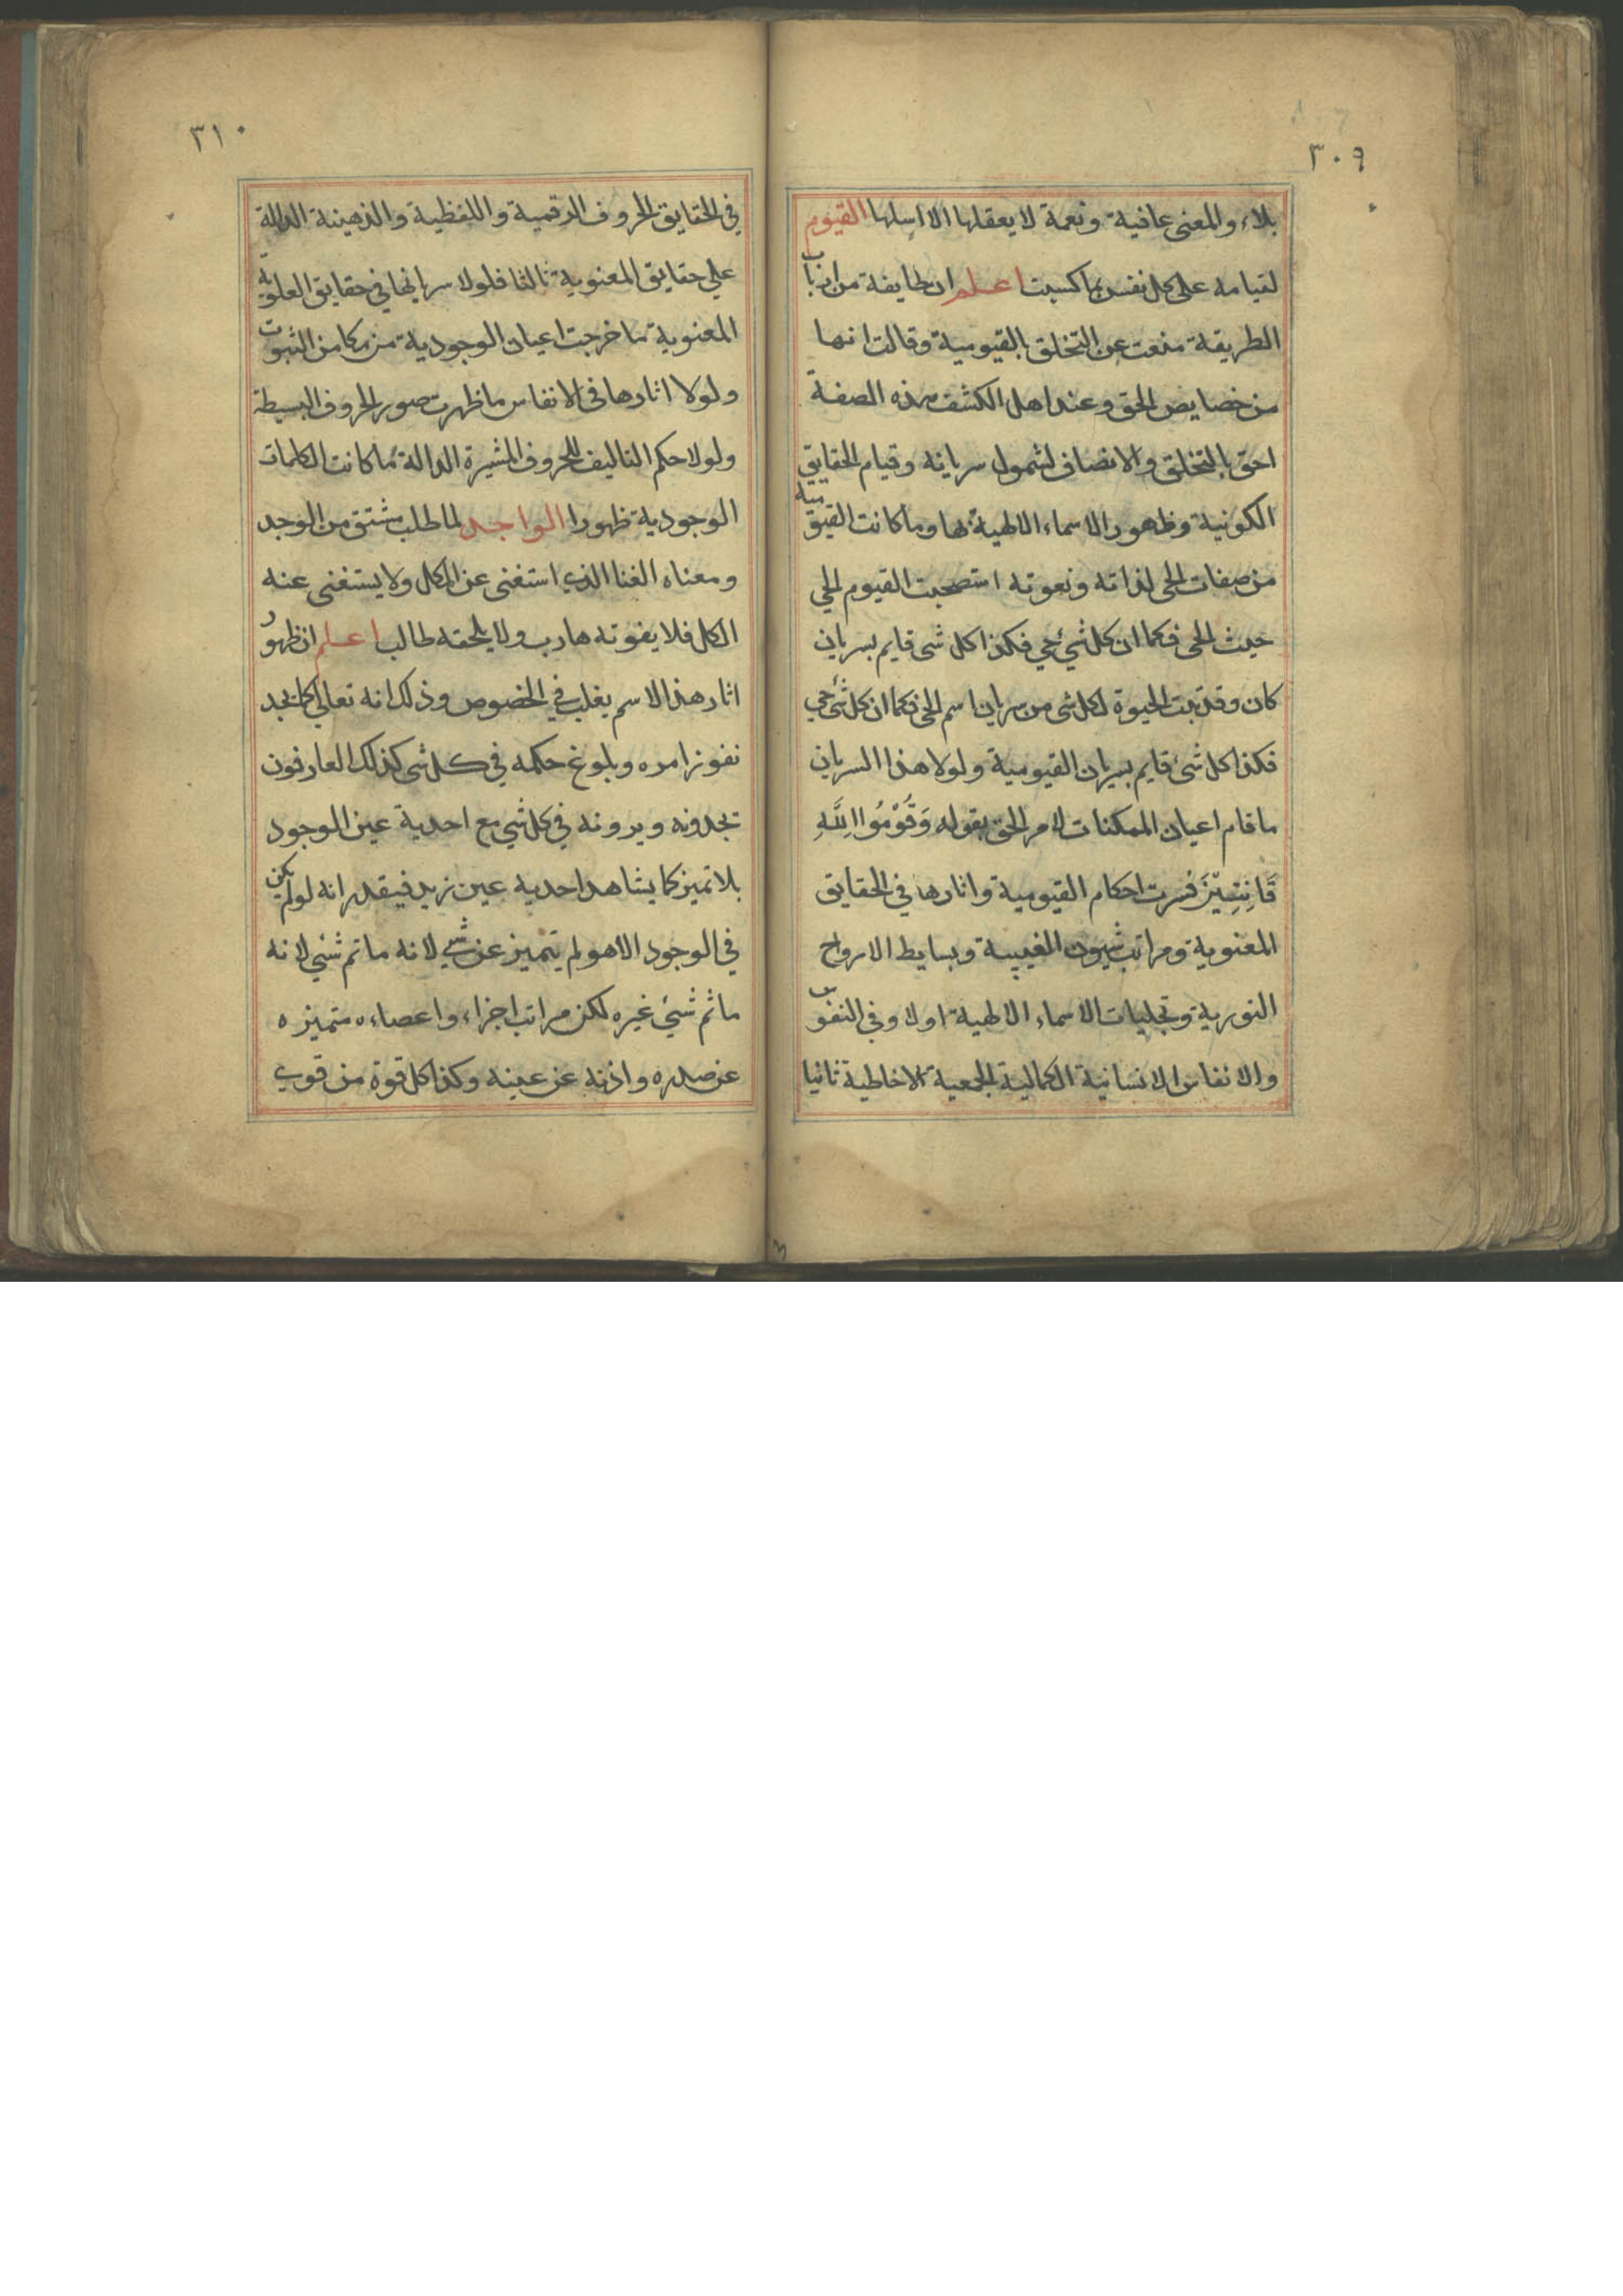 ٣٠٩
بلاء والمعنى عافية ونعمة لا يعقلها الا اسلها القيوم
لقيامه على كل نفس بما كسبت اعلم ان طايفة من ارباب
الطريقة منعت عن التخلق بالقيومية وقالت انها
من خصايص الحق وعند اهل الكشف هذه الصفة
احق بالتخلق والاتصاف لشمول سريانه وقيام الحقايق
الكونية وظهور الاسماء الالهية بها وما كانت القيومية
من صفات الحى لذاته ونعوته استصحبت القيوم الحي
حيث الحى فكما ان كل شيء حي فكذا كل شى قايم بسريان
كان وقد ثبت الحيوة لكل شى من سريان اسم الحى فكما ان كل شئ حي
فكذا كل شئ قايم بسريان القيومية ولولا هذا السريان
ما قام اعيان الممكنات لامر الحق بقوله وَقُوْمُوْا لِلّٰهِ
قَانِتِيْنَ فسرت احكام القيومية واثارها في الحقايق
المعنوية ومراتب شيون الغيبية وبسايط الارواح
النورية وتجليات الاسماء الالهية اولا وفى النفوس
والانفاس الانسانية الكمالية الجمعية الاحاطية ثانيا
٣١٠
في الحقايق الحروف الرقمية واللفظية والذهينة الدالة
على حقايق المعنوية ثالثا فلولا سريانها في حقايق العلوية
المعنوية ما خرجت اعيان الوجودية من مكامن الثبوت
ولولا اثارها فى الانفاس ما ظهرت صور الحروف البسيطة
ولولا حكم التاليف للحروف المشيرة الدالة ما كانت الكلمات
الوجودية ظهورا الواجد لما طلب مشتق من الوجد
ومعناه الغنا الذى استغنى عن الكل ولا يستغنى عنه
الكل فلا يفوته هارب ولا يلحقه طالب اعلم ان ظهور
اثار هذا الاسم يغلب في الخصوص وذلك انه تعالى كما يجد
نفوز امره وبلوغ حكمه في كل شى كذلك العارفون
تجدونه ويرونه في كل شي مع احدية عين الوجود
بلا تميز كما يشاهد احدية عين زيد فيقدر انه لو لم يكن
في الوجود الا هو لم يتميز عن شي لانه ما ثم شئي لانه
ما ثم شئ غيره لكن مراتب اجزاء واعصاءه متميزه
عن صدره واذنه عن عينه وكذا كل قوة من قوى